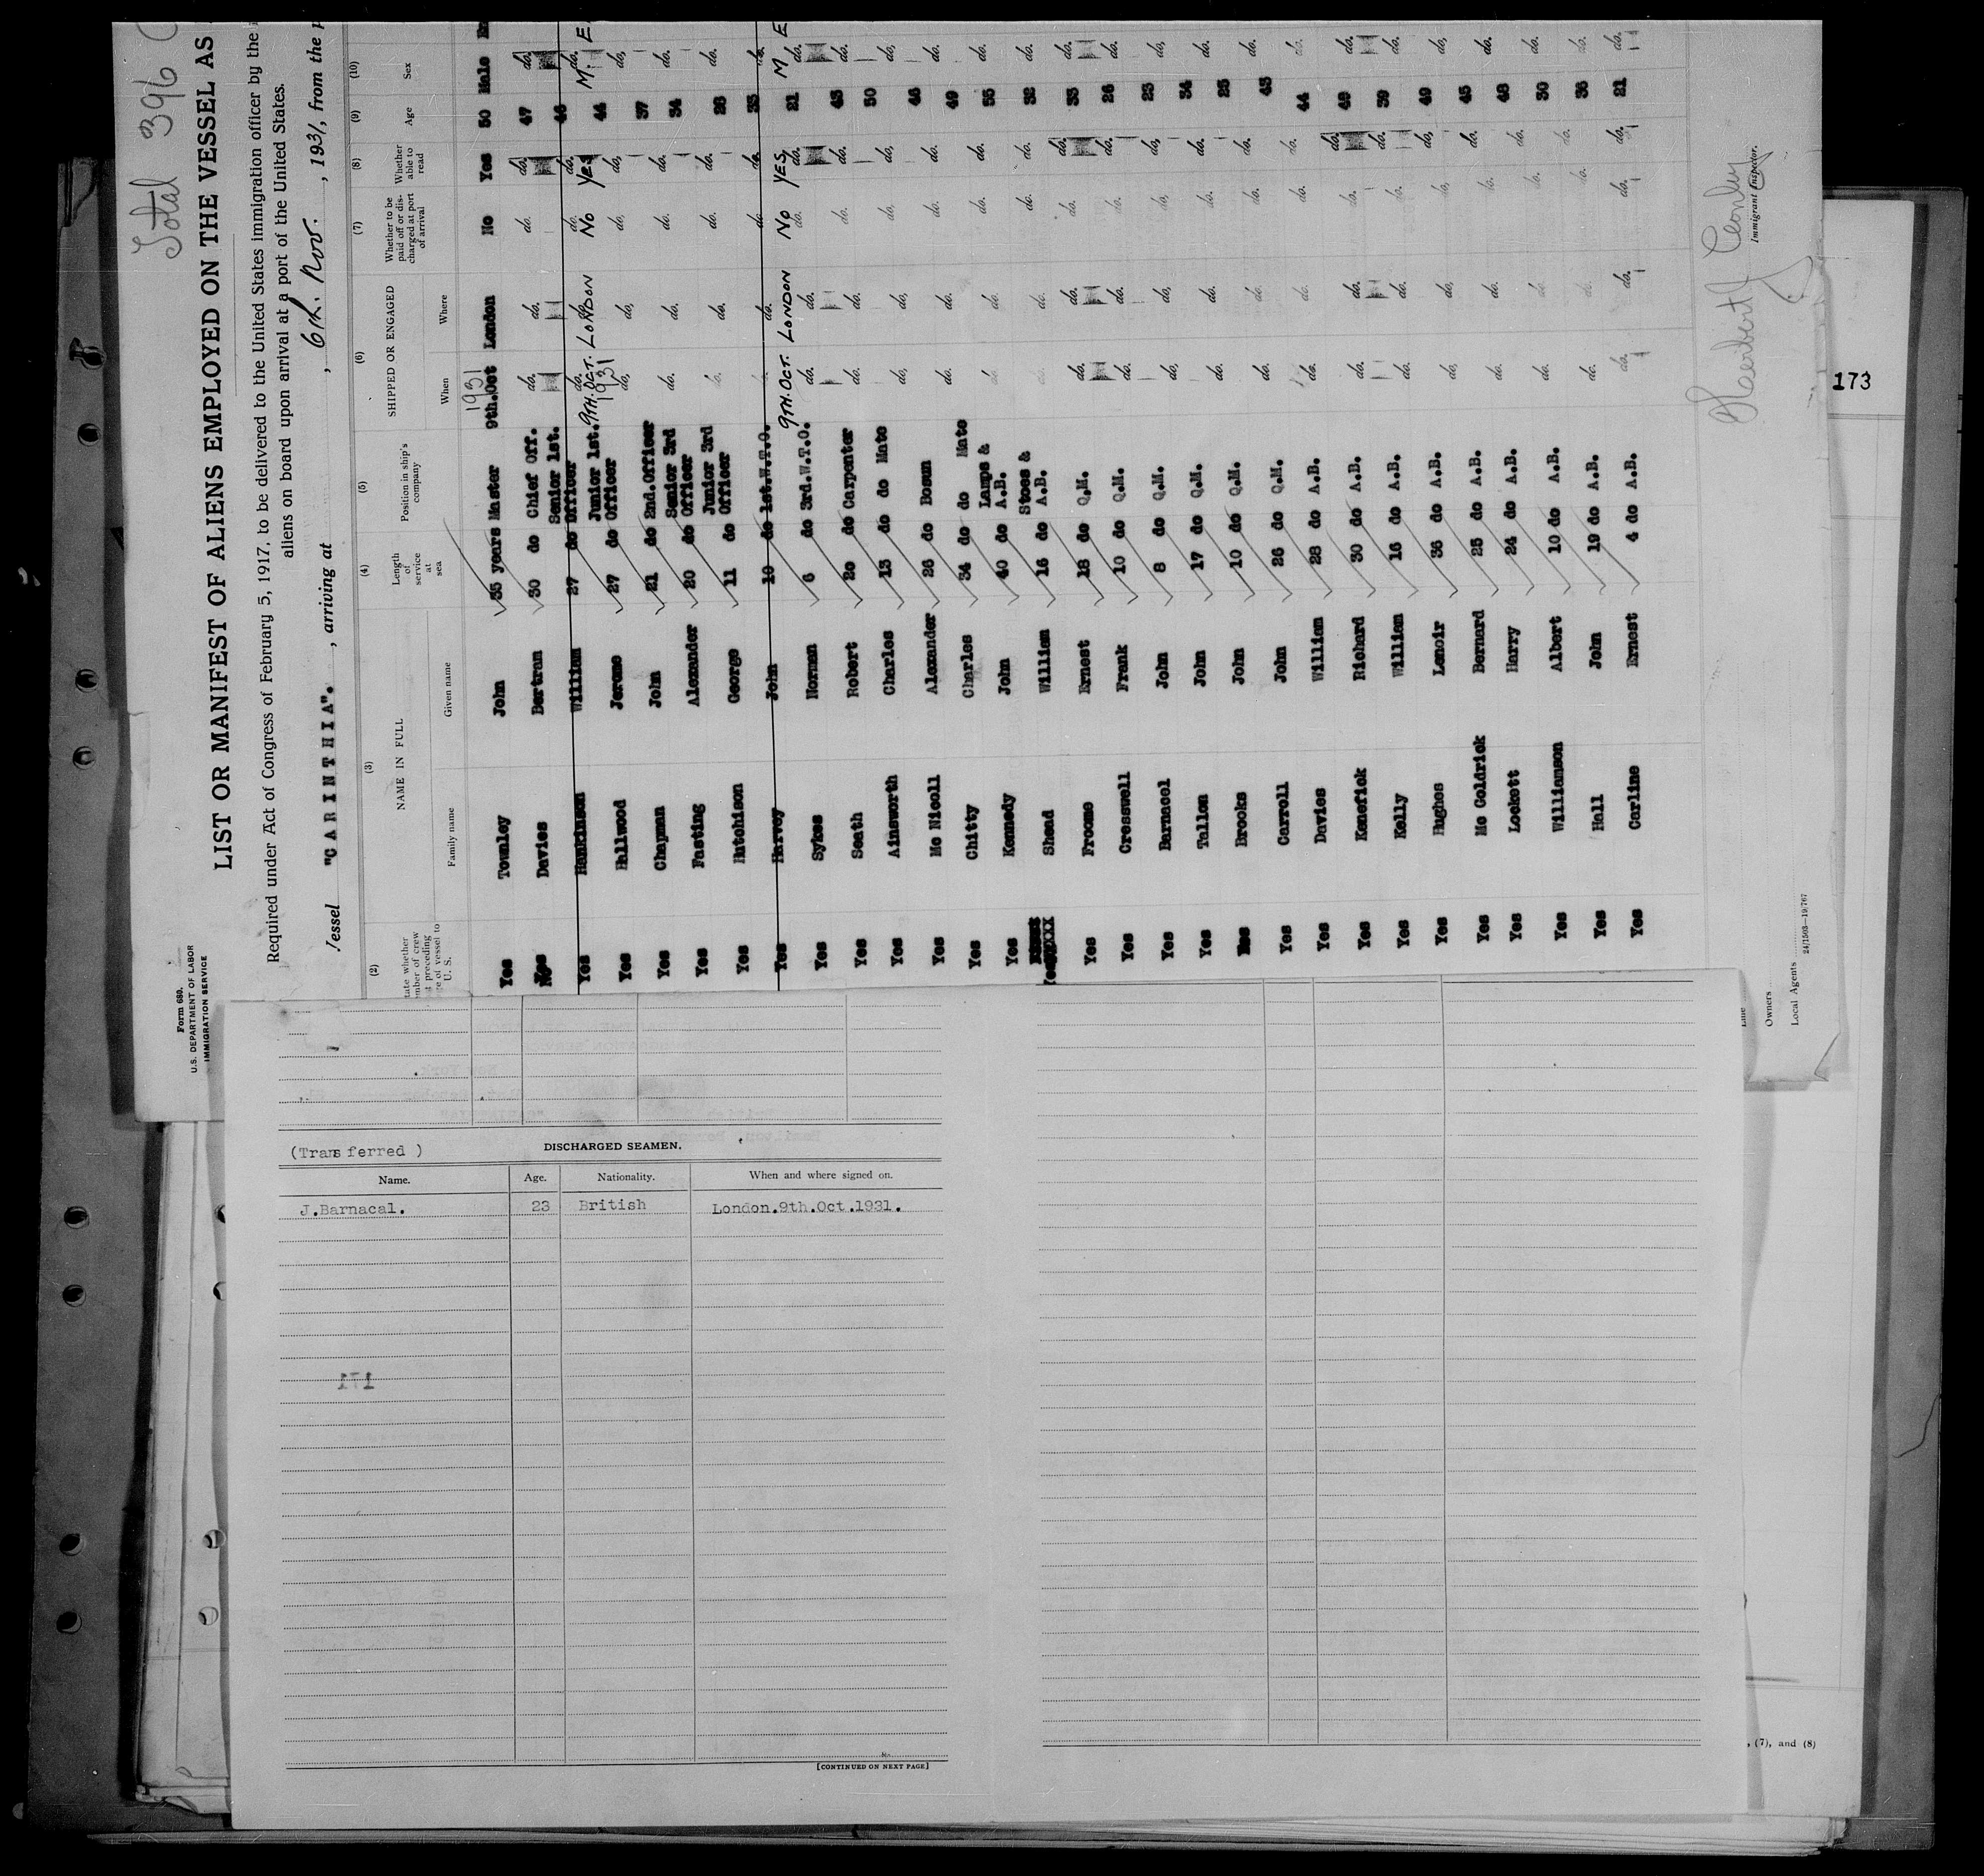 Total 396
Form 680.
U.S. DEPARTMENT OF LABOR
IMMIGRATION SERVICE
LIST OR MANIFEST OF ALIENS EMPLOYED ON THE VESSEL AS
Required under Act of Congress of February 5, 1917, to be delivered to the United States immigration officer by the
aliens on board upon arrival at a port of the United States.
Vessel "CARINTHIA". , arriving at , 6th. Nov. , 1931, from the p
(2) (3) (4) (5) (6) (7) (8) (9) (10)
NAME IN FULL
Family name Given name
Length of service at sea
Position in ship's company
SHIPPED OR ENGAGED
When Where
Whether to be paid off or discharged at port of arrival
Whether able to read
Age
Sex
1931
Yes Townley John 35 years Master 9th.Oct London No Yes 50 Male
No Davies Bertram 30 do Chief Off. do. do. do. do. 47 do.
Yes Hankinson William 27 do Senior 1st. Officer do. do. do. do. 46 do.
Yes Hallwood Jerome 27 do Junior 1st. Officer 9TH. OCT. 1931 LONDON No YES 44 M. E
Yes Chapman John 21 do 2nd.Officer do. do. do. do. 37 do.
Yes Fasting Alexander 20 do Senior 3rd Officer do. do. do. do. 34 do.
Yes Hutchison George 11 do Junior 3rd Officer do. do. do. do. 28 do.
Yes Harvey John 10 do 1st.W.T.O. do. do. do. 35 do.
Yes Sykes Norman 6 do 3rd.W.T.O. 9TH. OCT. LONDON No YES 21 M E
Yes Seath Robert 20 do Carpenter do. do. do. do. 43 do.
Yes Ainsworth Charles 13 do do Mate do. do. do. do. 50 do.
Yes Mc Nicoll Alexander 26 do Bosun do. do. do. do. 46 do.
Yes Chitty Charles 34 do do Mate do. do. do. do. 49 do.
Yes Kennedy John 40 do Lamps & A.B. do. do. do. do. 55 do.
Shead William 16 do Stoes & A.B. do. do. do. do. 32 do.
Yes Froome Ernest 18 do Q.M. do. do. do. do. 33 do.
Yes Cresswell Frank 10 do Q.M. do. do. do. do. 26 do.
Yes Barnacel John 8 do Q.M. do. do. do. do. 23 do.
Yes Tallon John 17 do Q.M. do. do. do. do. 34 do.
Brooks John 10 do Q.M. do. do. do. do. 25 do.
Yes Carroll John 26 do Q.M. do. do. do. do. 43 do.
Yes Davies William 28 do A.B. do. do. do. 44 do.
Yes Kenefick Richard 30 do A.B. do. do. do. do. 49 do.
Yes Kelly William 16 do A.B. do. do. do. do. 39 do.
Yes Hughes Lenoir 36 do A.B. do. do. do. do. 49 do.
Yes Mc Goldrick Bernard 25 do A.B. do. do. do. do. 45 do.
Yes Lockett Harry 24 do A.B. do. do. do. do. 48 do.
Yes Williamson Albert 10 do A.B. do. do. do. do. 30 do.
Yes Hall John 19 do A.B. do. do. do. do. 36 do.
Yes Carline Ernest 4 do A.B. do. do. do. do. 21 do.
Herbert
Immigrant Inspector.
Line
Owners
Local Agents
173
(Transferred ) DISCHARGED SEAMEN.
Name. Age. Nationality. When and where signed on.
J.Barnacal. 23 British London.9th.Oct.1931.
171
[CONTINUED ON NEXT PAGE]
, (7), and (8)